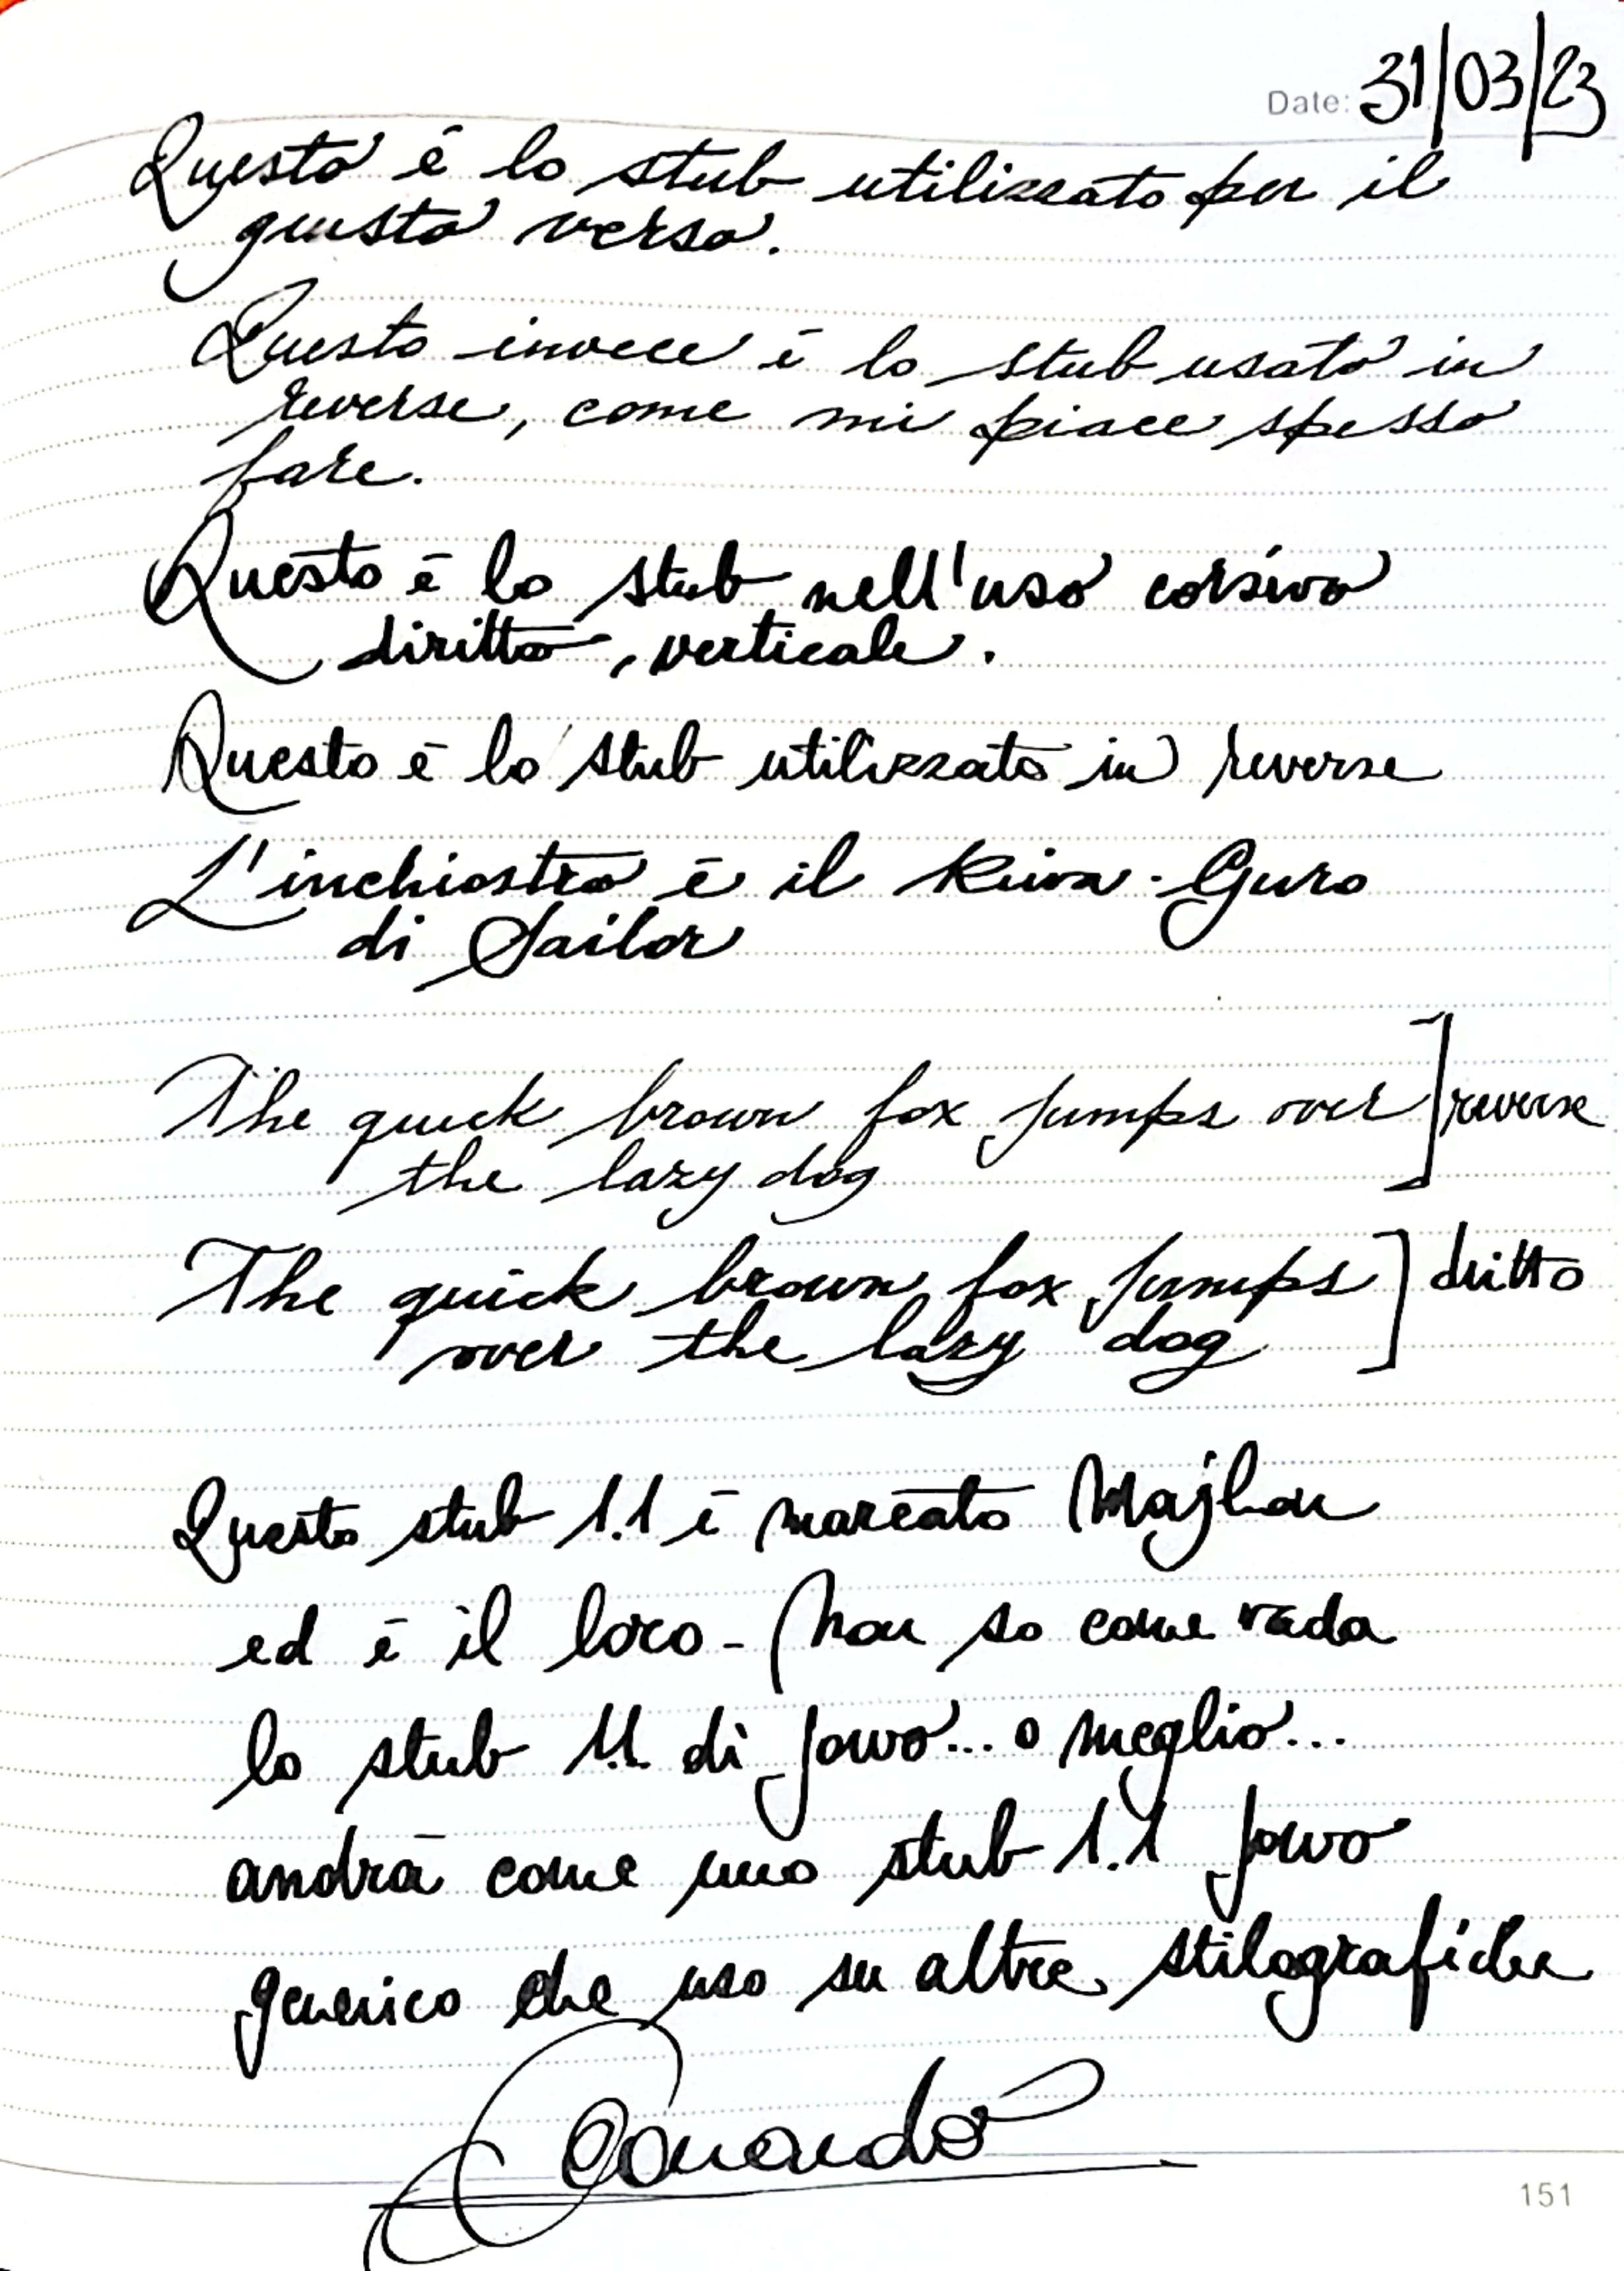 Date: 31/03/23
Questo è lo stub utilizzato per il
giusto verso.
Questo invece è lo stub usato in
reverse, come mi piace spesso
fare.
Questo è lo stub nell'uso corsivo
diritto, verticale.
Questo è lo stub utilizzato in reverse
L'inchiostro è il Kiwa-Guro
di Sailor
The quick brown fox jumps over
the lazy dog
reverse
The quick brown fox jumps
over the lazy dog
dritto
Questo stub 1.1 è marcato Majhon
ed è il loro - Non so come vada
lo stub 1.1 di Jowo... o meglio...
andrà come uno stub 1.1 Jowo
generico che uso su altre stilografiche
151